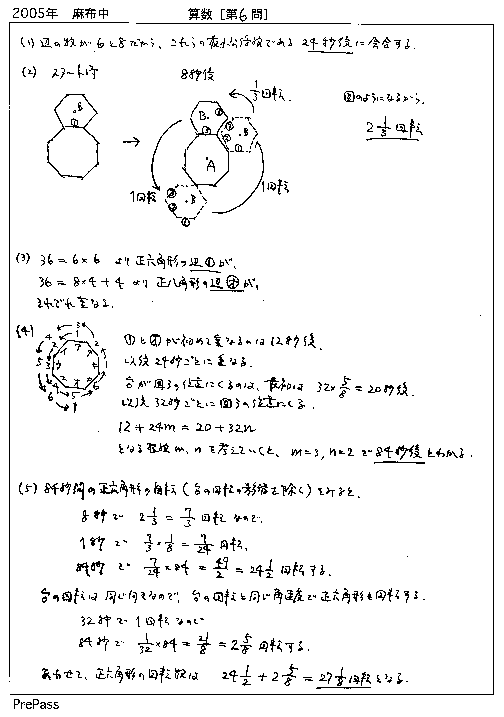 2005年 麻布中 算数 [第6問]
(1) 辺の数が6と8だから、これらの最小公倍数である 24秒後に会合する.
(2) スタート時 8秒後
1/3回転. 図のようになるから,
2 1/3 回転
B B
→ A
1回転 1回転
B
(3) 36 = 6×6 より 正六角形の辺①が、
36 = 8×4+4 より 正八角形の辺
それぞれ重なる.
(4)
が初めて重なるのは12秒後.
以後24秒ごとに重なる.
台が図3の位置にくるのは, 最初は 32×5/8 = 20秒後.
以後32秒ごとに図3の位置にくる.
12 + 24m = 20 + 32n
となる整数 m, n を考えていくと, m=3, n=2 で 84秒後とわかる.
(5) 84秒間の正六角形の自転 (台の回転の影響を除く) をみると.
8秒で 2 1/3 = 7/3 回転なので,
1秒で 7/3 × 1/8 = 7/24 回転,
84秒で 7/24 × 84 = 49/2 = 24 1/2 回転する.
台の回転は同じ向きなので, 台の回転と同じ角度で正六角形も回転する.
32秒で1回転なので
84秒で 1/32 × 84 = 21/8 = 2 5/8 回転する.
あわせて, 正六角形の回転数は 24 1/2 + 2 5/8 = 27 1/8 回転となる.
PrePass